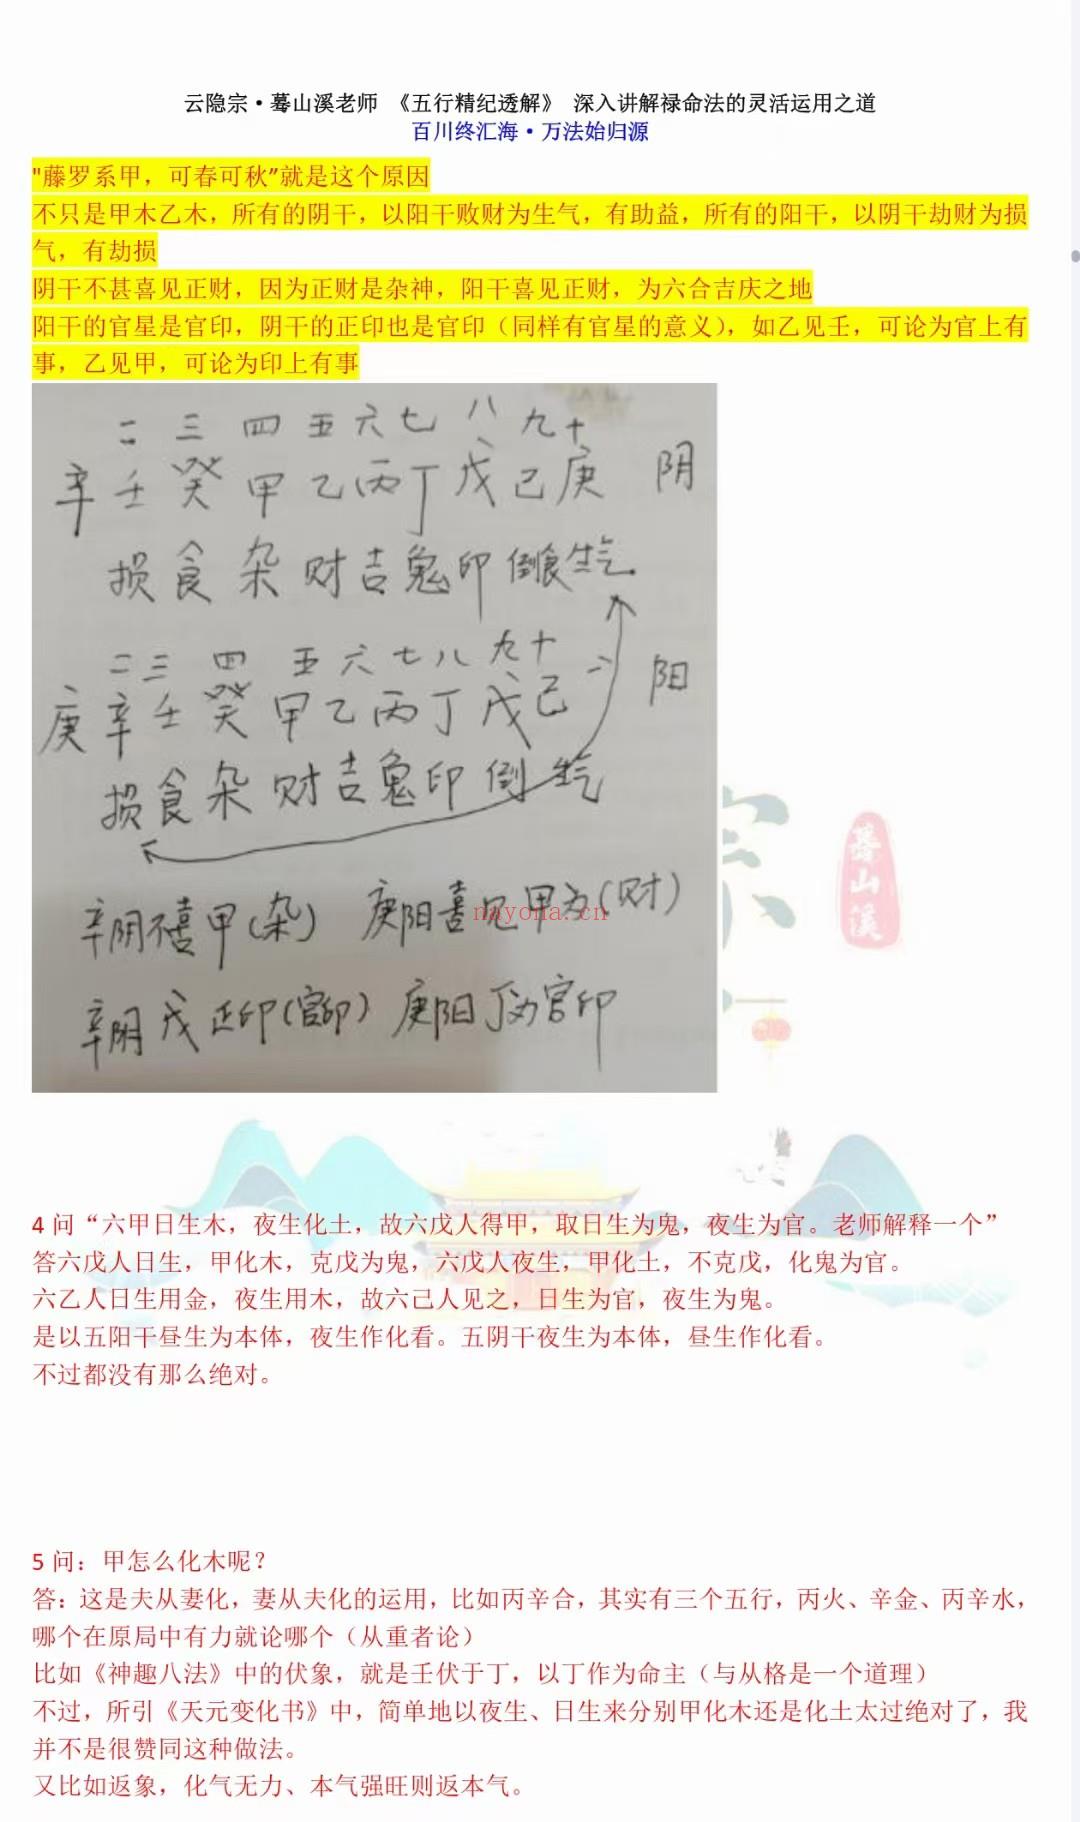 云隐宗·蓦山溪老师 《五行精纪透解》 深入讲解禄命法的灵活运用之道
百川终汇海·万法始归源
"藤罗系甲，可春可秋”就是这个原因
不只是甲木乙木，所有的阴干，以阳干败财为生气，有助益，所有的阳干，以阴干劫财为损
气，有劫损
阴干不甚喜见正财，因为正财是杂神，阳干喜见正财，为六合吉庆之地
阳干的官星是官印，阴干的正印也是官印（同样有官星的意义），如乙见壬，可论为官上有
事，乙见甲，可论为印上有事
二 三 四 五 六 七 八 九 十
辛 壬 癸 甲 乙 丙 丁 戊 己 庚 阴
损 食 杂 财 吉 鬼 印 倒食 生气
二 三 四 五 六 七 八 九 十
庚 辛 壬 癸 甲 乙 丙 丁 戊 己 阳
损 食 杂 财 吉 鬼 印 倒 生气
辛阴不喜甲(杂) 庚阳喜见甲为(财)
nayona.cn
辛阴 戊 正印(官印) 庚阳丁为官印
宗
蓦山溪
4 问“六甲日生木，夜生化土，故六戊人得甲，取日生为鬼，夜生为官。老师解释一个”
答六戊人日生，甲化木，克戊为鬼，六戊人夜生，甲化土，不克戊，化鬼为官。
六乙人日生用金，夜生用木，故六己人见之，日生为官，夜生为鬼。
是以五阳干昼生为本体，夜生作化看。五阴干夜生为本体，昼生作化看。
不过都没有那么绝对。
5 问：甲怎么化木呢？
答：这是夫从妻化，妻从夫化的运用，比如丙辛合，其实有三个五行，丙火、辛金、丙辛水，
哪个在原局中有力就论哪个（从重者论）
比如《神趣八法》中的伏象，就是壬伏于丁，以丁作为命主（与从格是一个道理）
不过，所引《天元变化书》中，简单地以夜生、日生来分别甲化木还是化土太过绝对了，我
并不是很赞同这种做法。
又比如返象，化气无力、本气强旺则返本气。